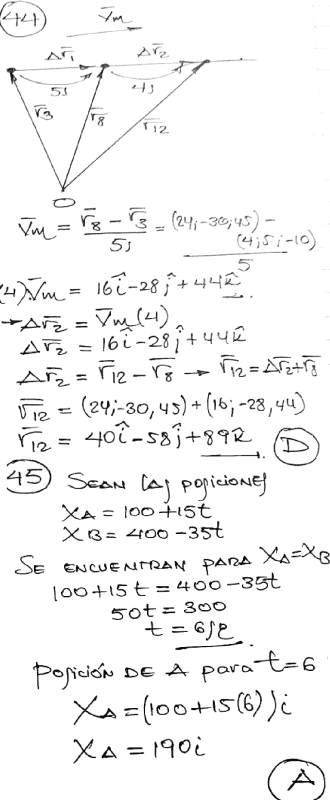 44
V̄m
Δr̄₁ Δr̄₂
5s 4s
r̄₃ r̄₈ r̄₁₂
O
V̄m = (r̄₈ − r̄₃)/5s = ((24;-30,45) − (4;5;-10))/5
(4)V̄m = 16î-28ĵ+44k̂
→Δr̄₂ = V̄m(4)
Δr̄₂ = 16î-28ĵ+44k̂
Δr̄₂ = r̄₁₂ − r̄₈ → r̄₁₂=Δr̄₂+r̄₈
r̄₁₂ = (24;-30,45)+(16;-28,44)
r̄₁₂ = 40î-58ĵ+89k̂ D
45 SEAN LAS POSICIONES
XA = 100+15t
XB = 400-35t
SE ENCUENTRAN PARA XA=XB
100+15t = 400-35t
50t = 300
t = 6s
POSICIÓN DE A para t=6
XA=(100+15(6))i
XA = 190i
A